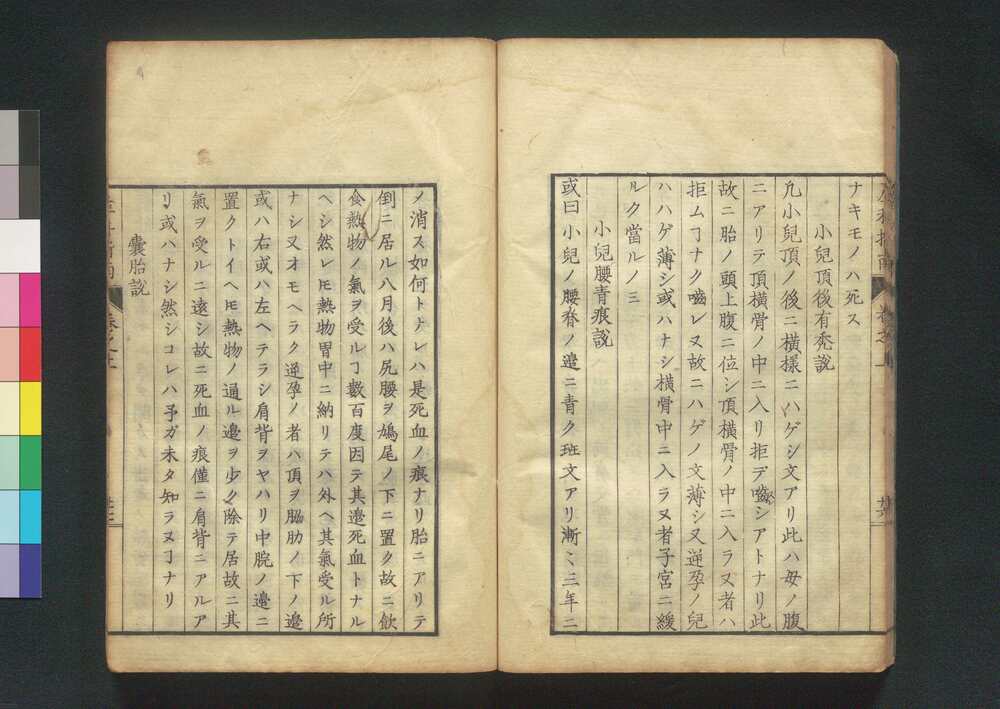 ナキモノハ死ス
小兒頂後有禿説
凢小兒頂ノ後ニ横様ニハゲシ文アリ此ハ母ノ腹
ニアリテ頂横骨ノ中ニ入リ拒デ嚙シアトナリ此
故ニ胎ノ頭上腹ニ位シ頂横骨ノ中ニ入ラヌ者ハ
拒ムヿナク嚙レヌ故ニハゲノ文薄シ又逆孕ノ兒
ハハゲ薄シ或ハナシ横骨中ニ入ラヌ者子宮ニ緩
ルク當ルノミ
小兒腰青痕説
或曰小兒ノ腰脊ノ邉ニ青ク班文アリ漸〻三年ニ
メ消ス如何トナレハ是死血ノ痕ナリ胎ニアリテ
倒ニ居ル八月後ハ尻腰ヲ鳩尾ノ下ニ置ク故ニ飲
食熱物ノ氣ヲ受ルヿ數百度因テ其邉死血トナル
ヘシ然レ𪜈熱物胃中ニ納リテハ外ヘ其氣受ル所
ナシ又オモヘラク逆孕ノ者ハ頂ヲ脇肋ノ下ノ邉
或ハ右或ハ左ヘテラシ肩背ヲヤハリ中脘ノ邉ニ
置クトイヘ𪜈熱物ノ通ル邉ヲ少ク除テ居故ニ其
氣ヲ受ルニ遠シ故ニ死血ノ痕僅ニ肩背ニアルア
リ或ハナシ然シコレハ予ガ未タ知ラヌヿナリ
嚢胎説